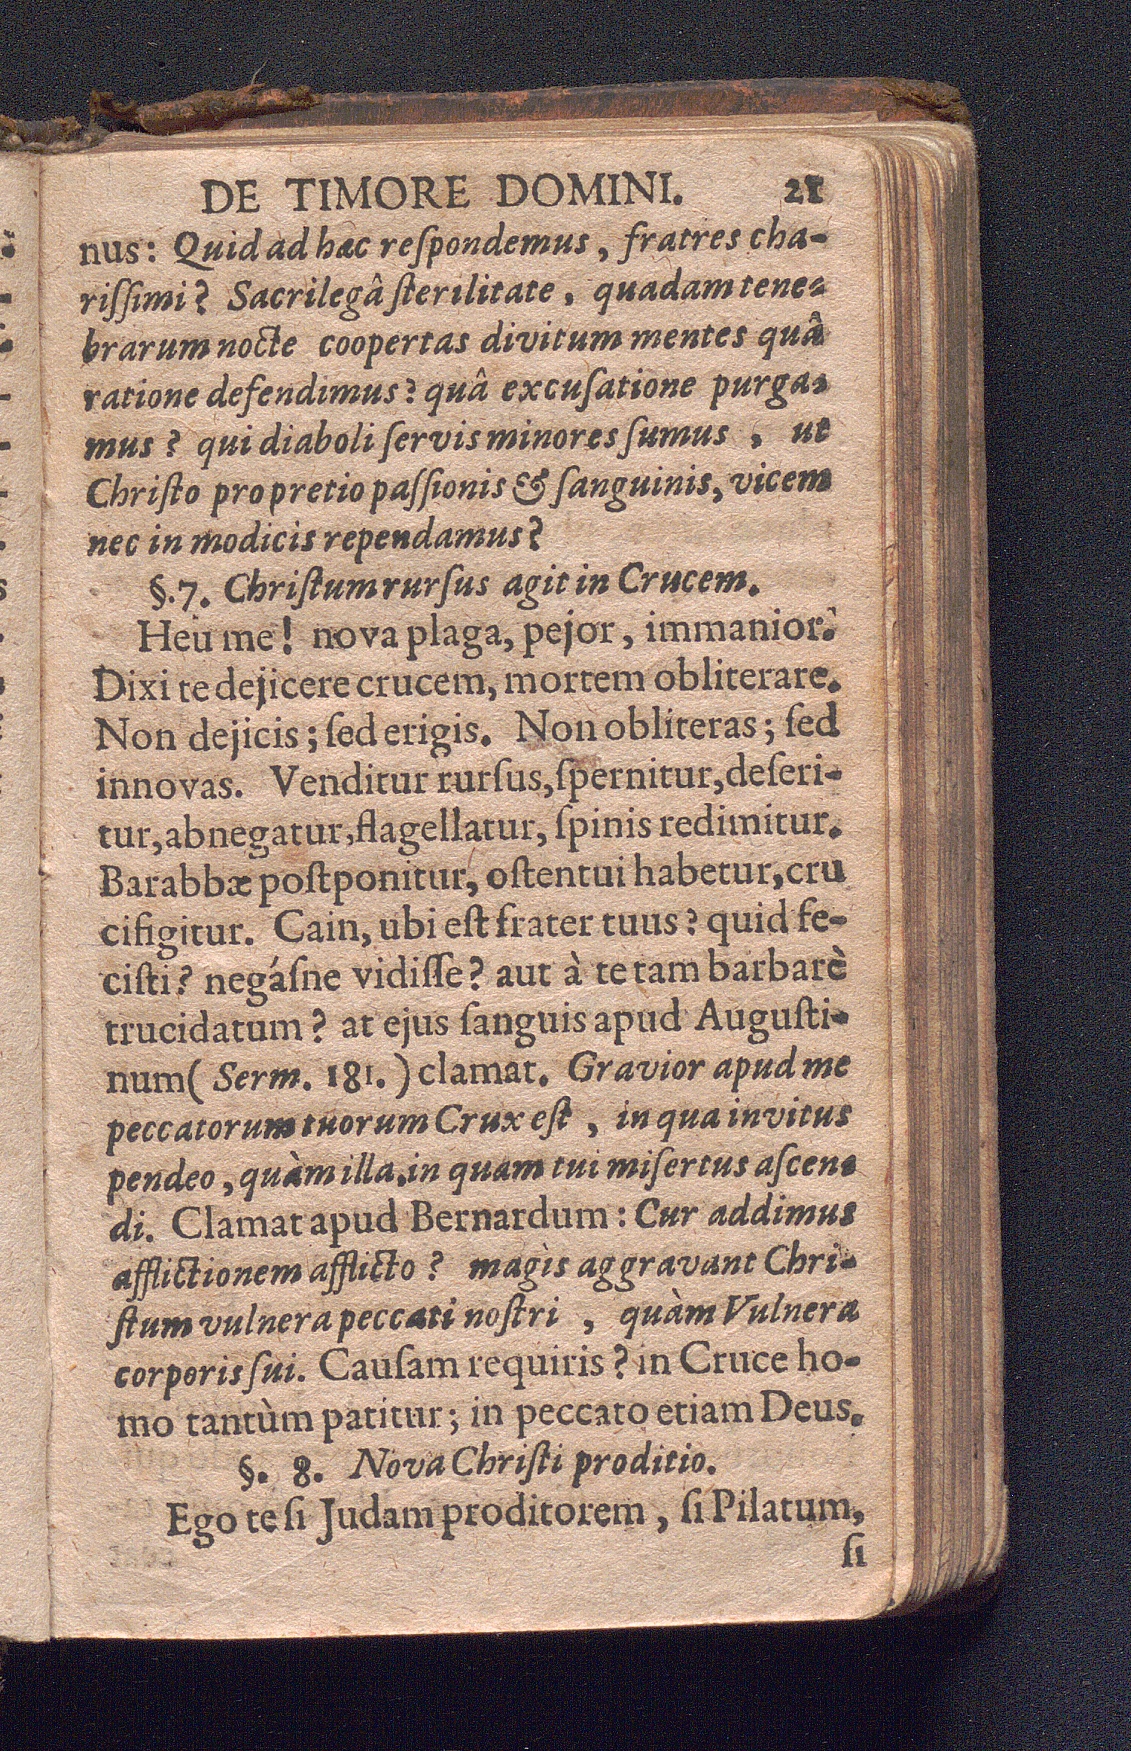 DE TIMORE DOMINI. 21
nus: Quid ad hæc reſpondemus, fratres cha-
riſſimi? Sacrilegâ ſterilitate, quadam tene-
brarum nocte coopertas divitum mentes quâ
ratione defendimus? quâ excuſatione purga-
mus? qui diaboli ſervis minores ſumus, ut
Chriſto pro pretio paſſionis & ſanguinis, vicem
nec in modicis rependamus?
§. 7. Chriſtum rurſus agit in Crucem.
Heu me! nova plaga, pejor, immanior.
Dixi te dejicere crucem, mortem obliterare.
Non dejicis; ſed erigis. Non obliteras; ſed
innovas. Venditur rurſus, ſpernitur, deſeri-
tur, abnegatur, flagellatur, ſpinis redimitur.
Barabbæ poſtponitur, oſtentui habetur, cru
cifigitur. Cain, ubi eſt frater tuus? quid fe-
ciſti? negáſne vidiſſe? aut à te tam barbarè
trucidatum? at ejus ſanguis apud Auguſti-
num (Serm. 181.) clamat. Gravior apud me
peccatorum tuorum Crux eſt, in qua invitus
pendeo, quàm illa, in quam tui miſertus aſcen-
di. Clamat apud Bernardum: Cur addimus
afflictionem afflicto? magìs aggravant Chri-
ſtum vulnera peccati noſtri, quàm Vulnera
corporis ſui. Cauſam requiris? in Cruce ho-
mo tantùm patitur; in peccato etiam Deus.
§. 8. Nova Chriſti proditio.
Ego te ſi Judam proditorem, ſi Pilatum,
ſi